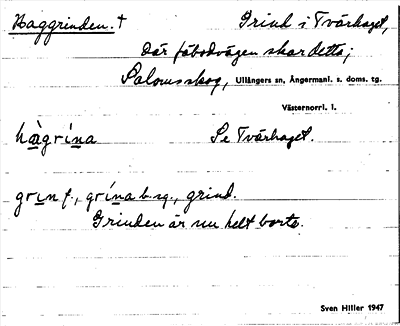 Haggrinden. † Grind i Tvärhaget,
där fäbodvägen skar detta;
Salomsskog, Ullångers sn, Ångermanl. s. doms. tg.
Västernorrl. l.
hàgrína Se Tvärhaget.
grın f., grína b. sg., grind.
Grinden är nu helt borta.
Sven Hiller 1947